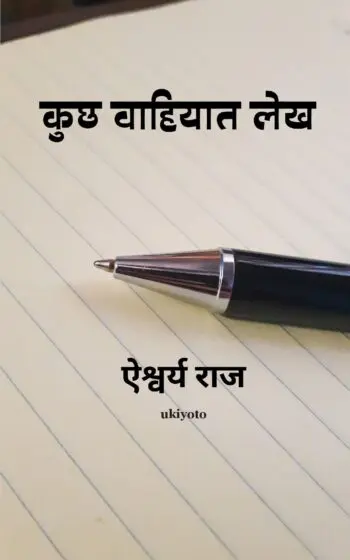 कुछ वाहियात लेख
ऐश्वर्य राज
ukiyoto